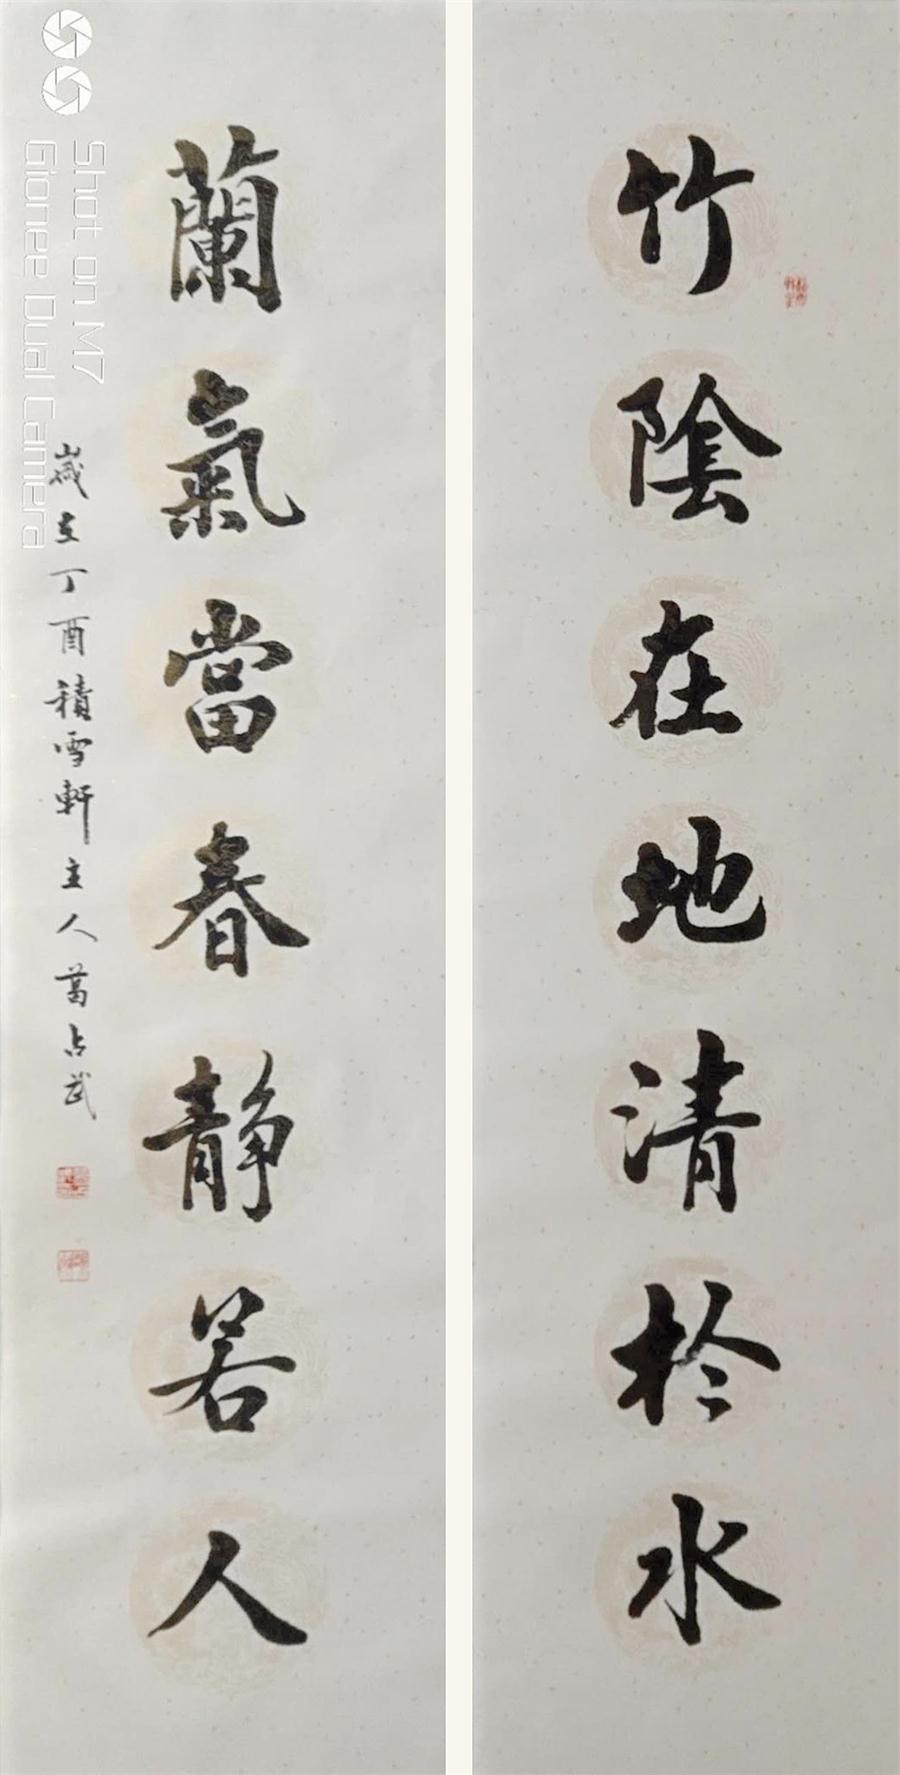 竹陰在地清於水
蘭氣當春靜若人
歲在丁酉積雪軒主人葛占武
Shot on M7
Gionee Dual Camera